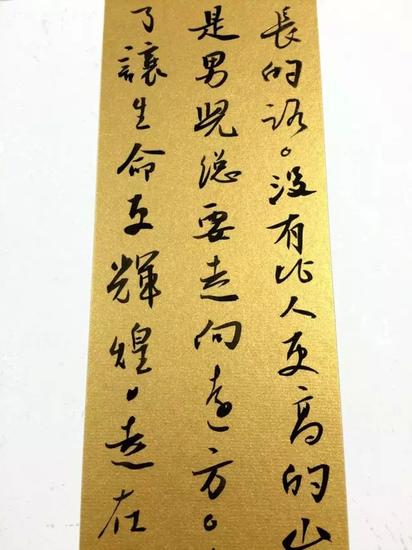 長的路。没有比人更高的山
是男児總要走向遠方。
了讓生命更輝煌。走在